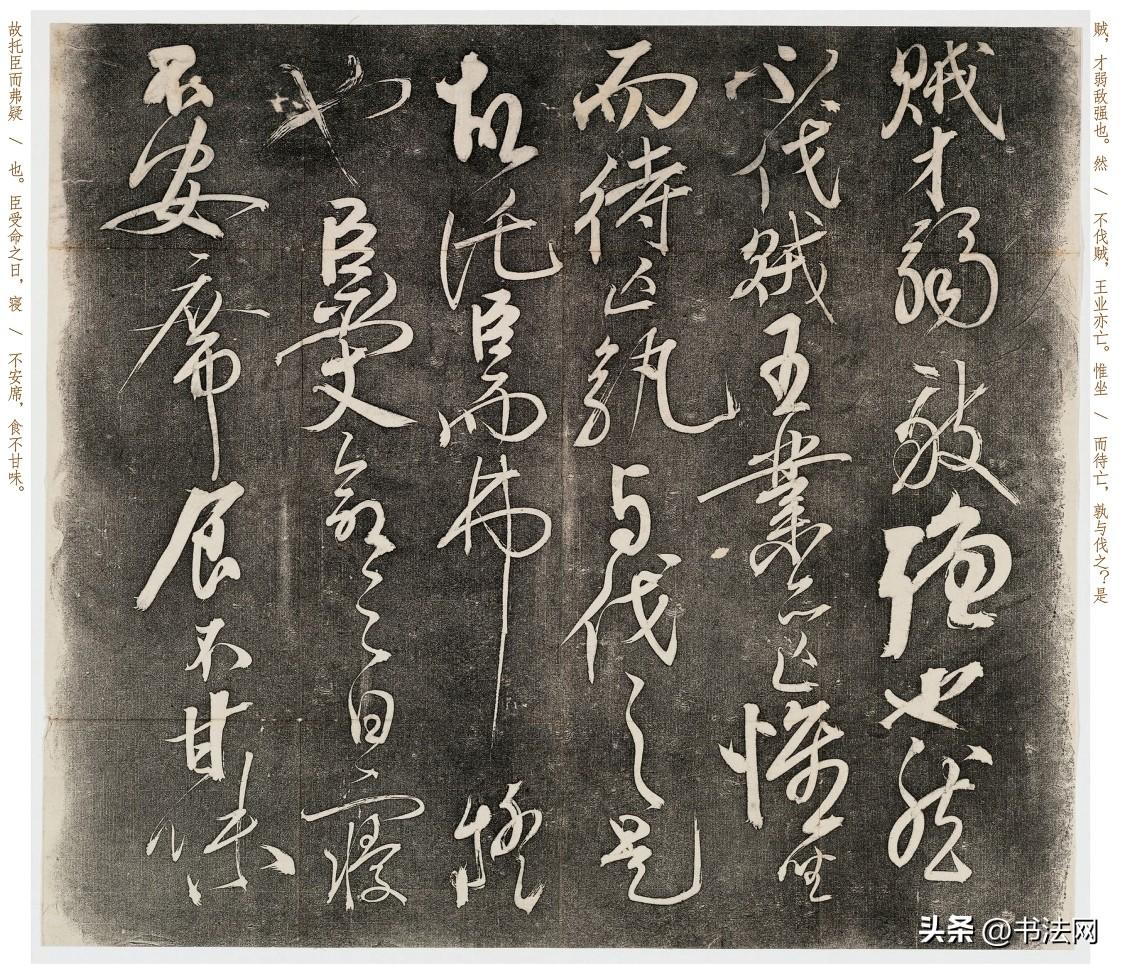 贼，才弱敌强也。然 / 不伐贼，王业亦亡。惟坐 / 而待亡，孰与伐之？是
賊才弱敵強也然
不伐賊王業亦亡惟坐
而待亡孰与伐之是
故託臣而弗疑
也臣受命之日寢
不安席食不甘味
故托臣而弗疑 / 也。臣受命之日，寝 / 不安席，食不甘味。
头条 @书法网